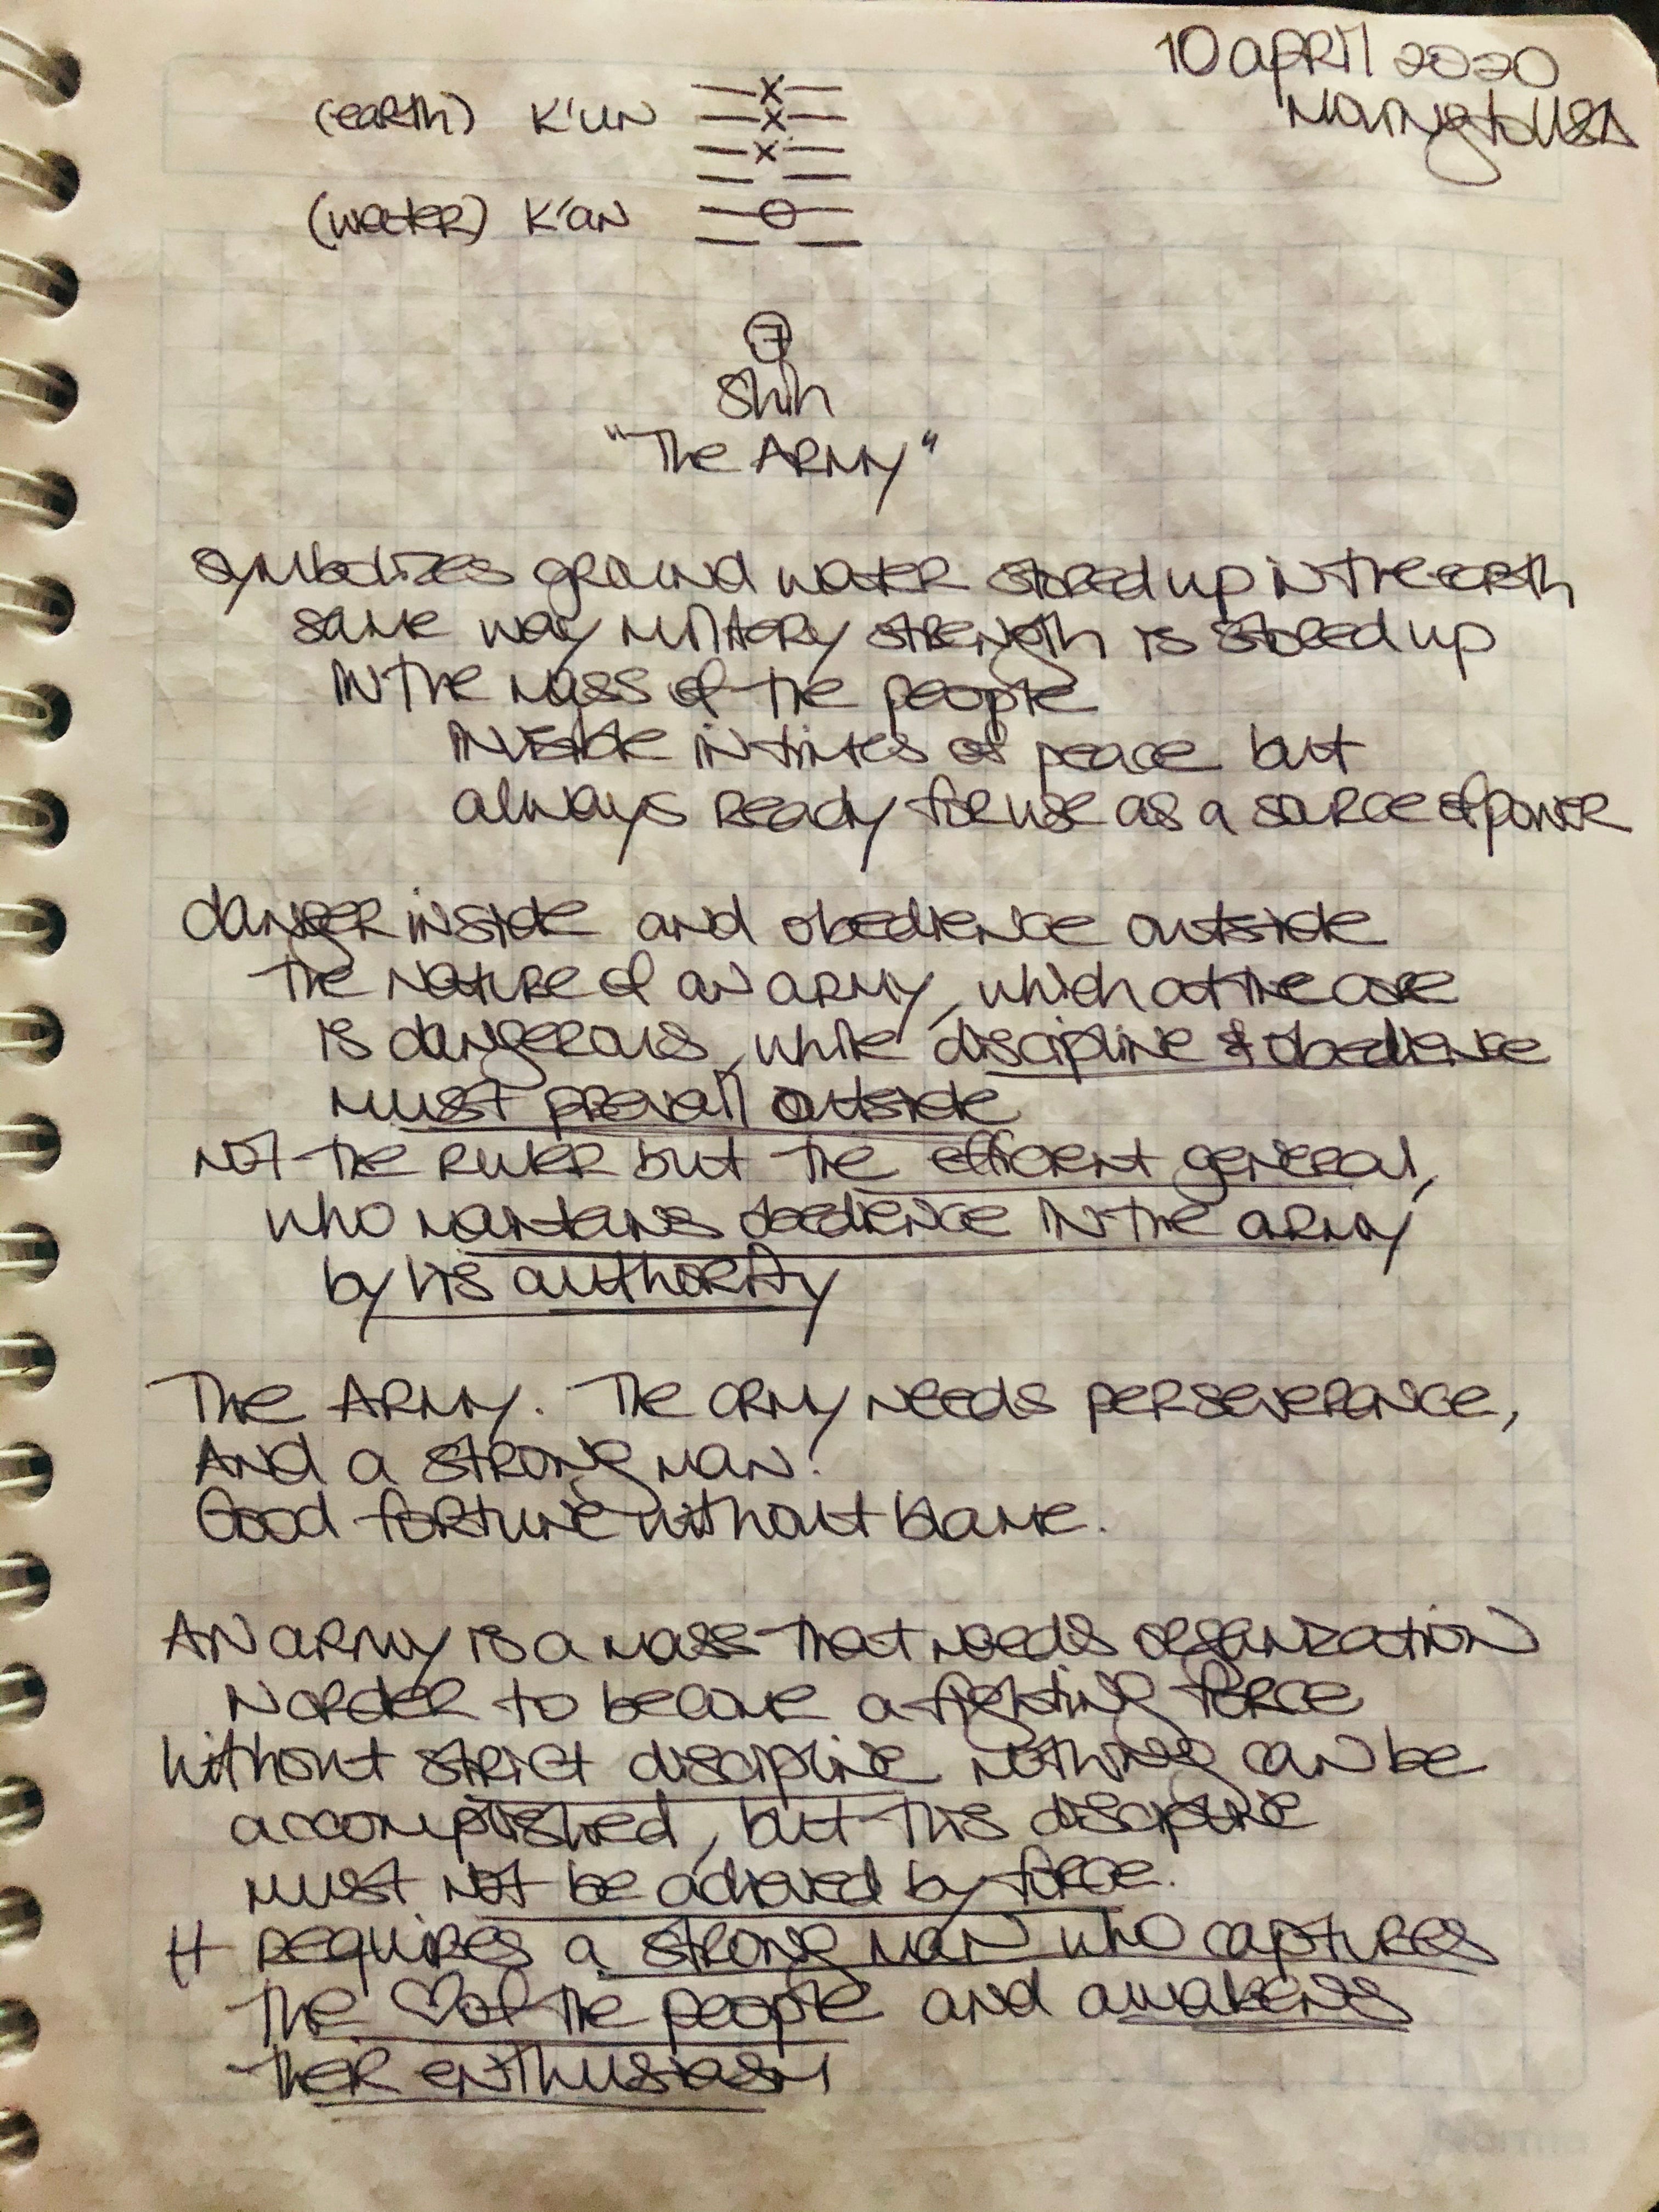 10 april 2020
(earth) K'UN
(water) K'an
7
Shih
"The ARMY"
symbolizes ground water stored up in the earth
same way military strength is stored up
in the mass of the people
invisible in times of peace but
always ready for use as a source of power
danger inside and obedience outside
the nature of an army, which at the core
is dangerous, while discipline & obedience
must prevail outside
not the ruler but the efficient general,
who mantains obedience in the army
by his authority
The ARMY. The army needs perseverance,
And a strong man.
Good fortune without blame.
An army is a mass that needs organization
in order to become a fighting force
without strict discipline nothing can be
accomplished, but this discipline
must not be achieved by force.
It requires a strong man who captures
the ♡ of the people and awakens
their enthusiasm